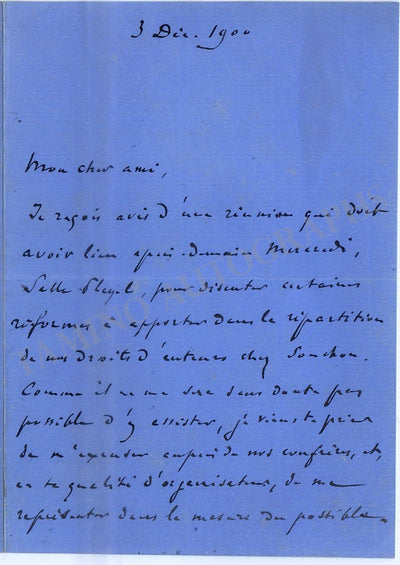 3 Déc. 1900
Mon cher ami,
Je reçois avis d'une réunion qui doit
avoir lieu après-demain Mercredi,
Salle Pleyel, pour discuter certaines
réformes à apporter dans la répartition
de nos droits d'auteurs chez Souchon.
Comme il ne me sera sans doute pas
possible d'y assister, je viens te prier
de m'excuser auprès de nos confrères, et,
en ta qualité d'organisateur, de me
représenter dans la mesure du possible.
TAMINO AUTOGRAPHS